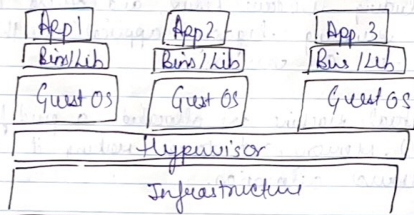 App 1 App 2 App 3
Bins/Lib Bins/Lib Bins/Lib
Guest OS Guest OS Guest OS
Hypervisor
Infrastructure